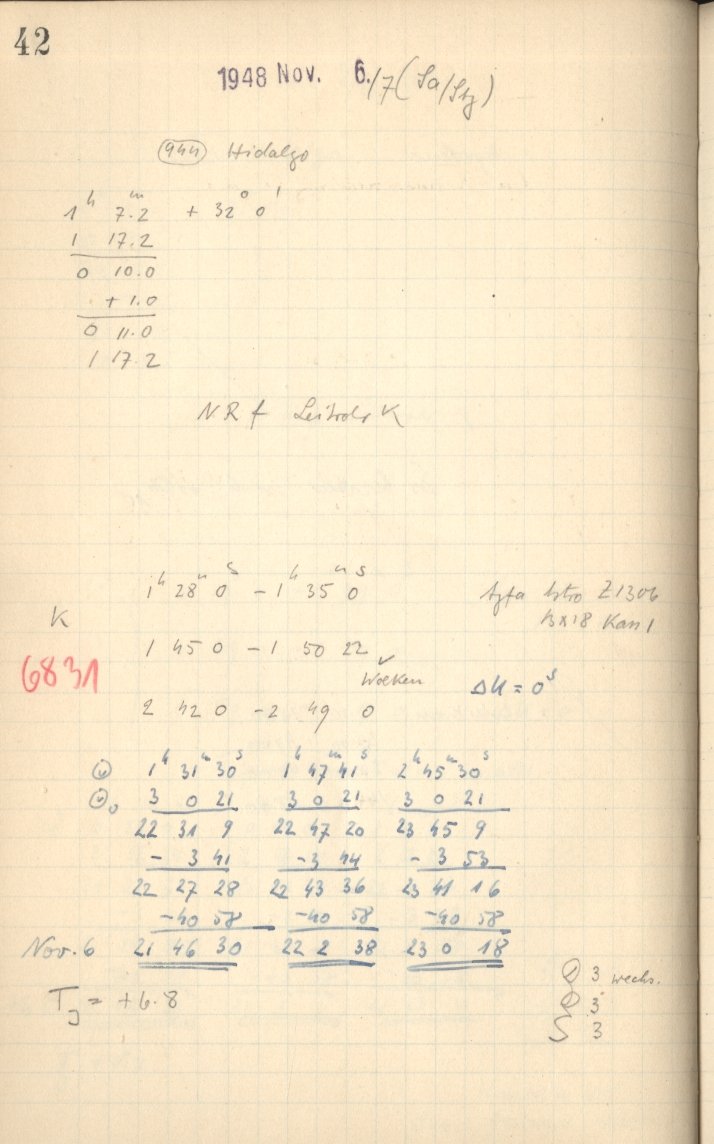 42
1948 Nov. 6./7 (Sa/Stg)
944 Hidalgo
1h 7m.2 + 32° 0'
1 17.2
0 10.0
+ 1.0
0 11.0
1 17.2
N R f Leitrohr K
1h 28m 0s – 1h 35m 0s
Agfa Astro Z1306
13x18 Kass 1
K
1 45 0 – 1 50 22
6831
Wolken
ΔU = 0s
2 42 0 – 2 49 0
1h 31m 30s 1h 47m 41s 2h 45m 30s
3 0 21 3 0 21 3 0 21
22 31 9 22 47 20 23 45 9
– 3 41 – 3 44 – 3 53
22 27 28 22 43 36 23 41 16
–40 58 –40 58 –40 58
Nov. 6 21 46 30 22 2 38 23 0 18
3 wechs.
TJ = +6.8
3
S 3